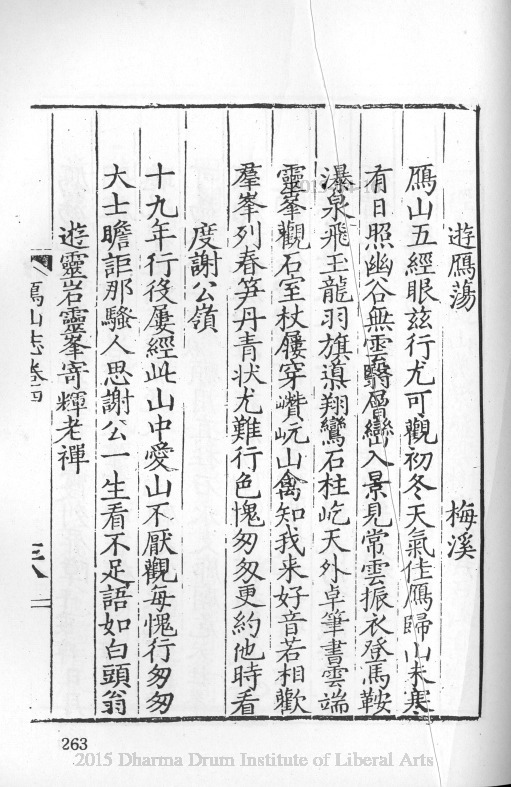 遊鴈蕩 梅溪
鴈山五經眼茲行尤可觀初冬天氣佳鴈歸山未寒
有日照幽谷無雲翳層巒入景見常雲振衣登馬鞍
瀑泉飛玉龍羽旗翔鸞石柱屹天外卓筆書雲端
靈峯觀石室杖屨穿巑岏山禽知我来好音若相歡
羣峯列春笋丹青状尤難行色愧匆匆更約他時看
度謝公嶺
十九年行役屢經此山中愛山不厭觀每愧行匆匆
大士瞻詎那騷人思謝公一生看不足語如白頭翁
遊靈岩靈峯寄輝老禪
鴈山志卷四
三八
263
2015 Dharma Drum Institute of Liberal Arts